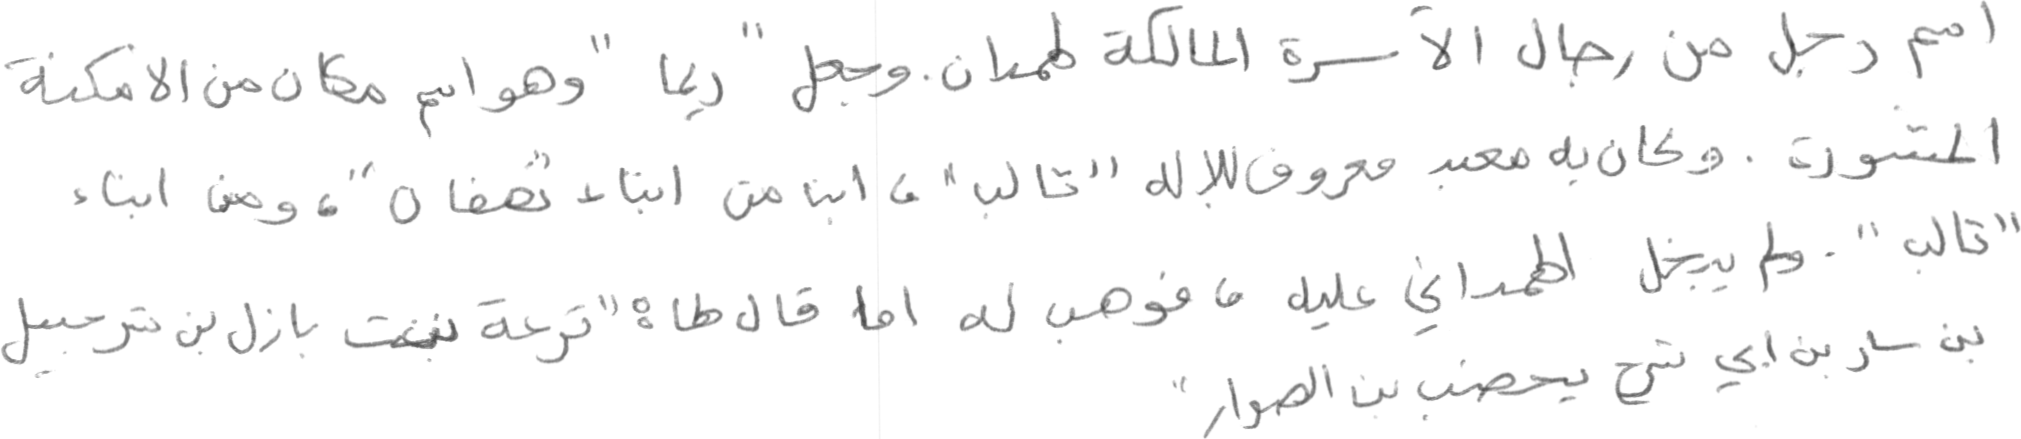 اسم رجل من رجال الأسرة المالكة لهمدان. وجعل "ريما" وهو اسم مكان من الامكنة
المشهورة. وكان به معبد معروف للإله "تالب" ، ابنا من ابناء "نهفان"، ومن ابناء
"تالب". ولم يبخل الهمداني عليه ، فوهب له اما قال لها "ترعة بنت بازل بن شرحبيل
بن سار بن ابي شرح يحصب بن الصوار"